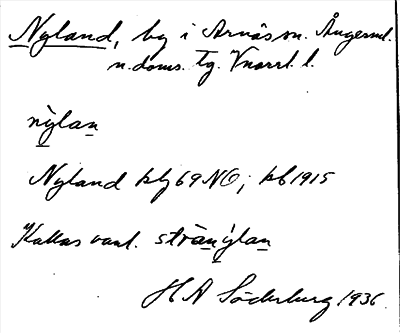 Nyland, by i Arnäs sn. Ångerml.
n. doms. tg. Vnorrl. l.
nỳlan
Nyland kbl 69 NO; kb 1915
Kallas vanl. strànýlan
H A Söderburg 1936.